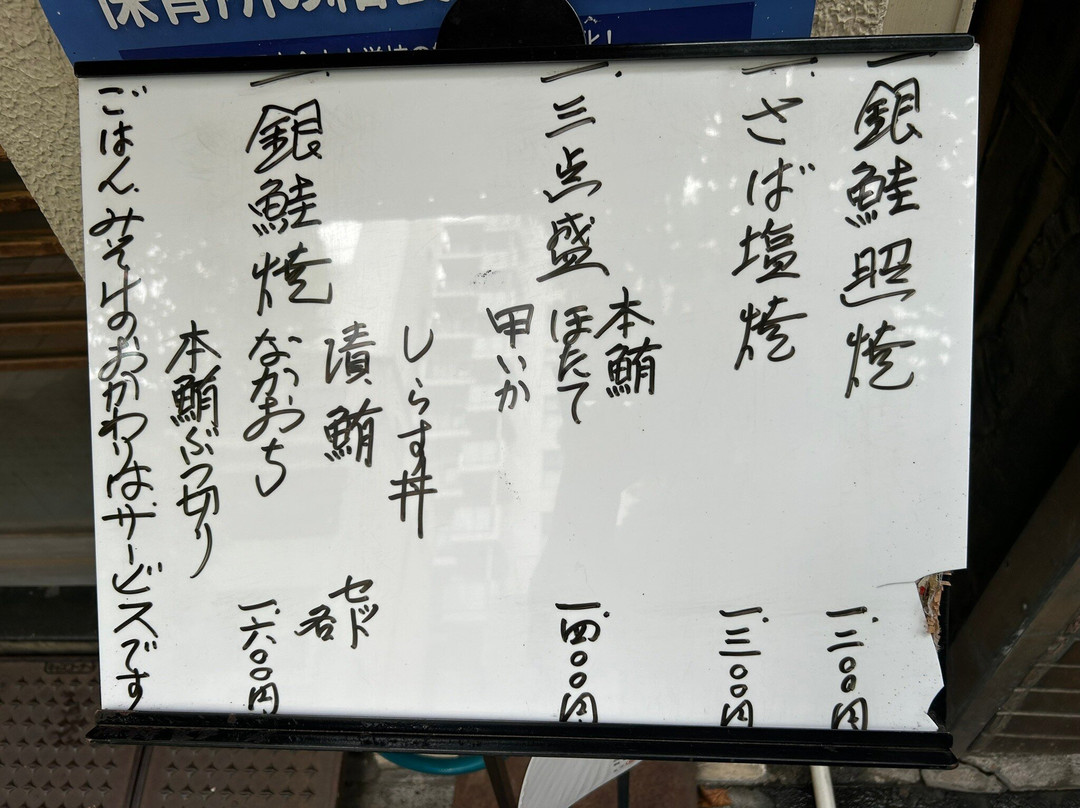 一.銀鮭照焼 一.二〇〇円
一.さば塩焼 一.三〇〇円
一.三点盛 本鮪 ほたて 甲いか 一.四〇〇円
一.銀鮭焼 しらす丼 漬鮪 なかおち 本鮪ぶつ切り セット各 一.六〇〇円
ごはん、みそ汁のおかわりはサービスです